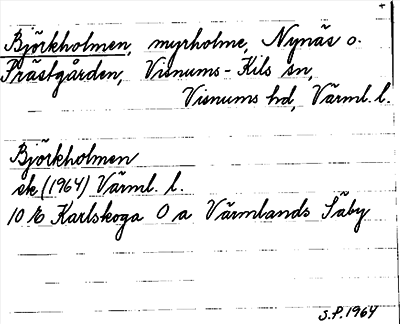 Björkholmen, myrholme, Nynäs o.
Prästgården, Visnums-Kils sn,
Visnums hd, Värml. l.
Björkholmen
ek (1964) Värml. l.
10 E Karlskoga O a Värmlands Säby
S.P. 1964